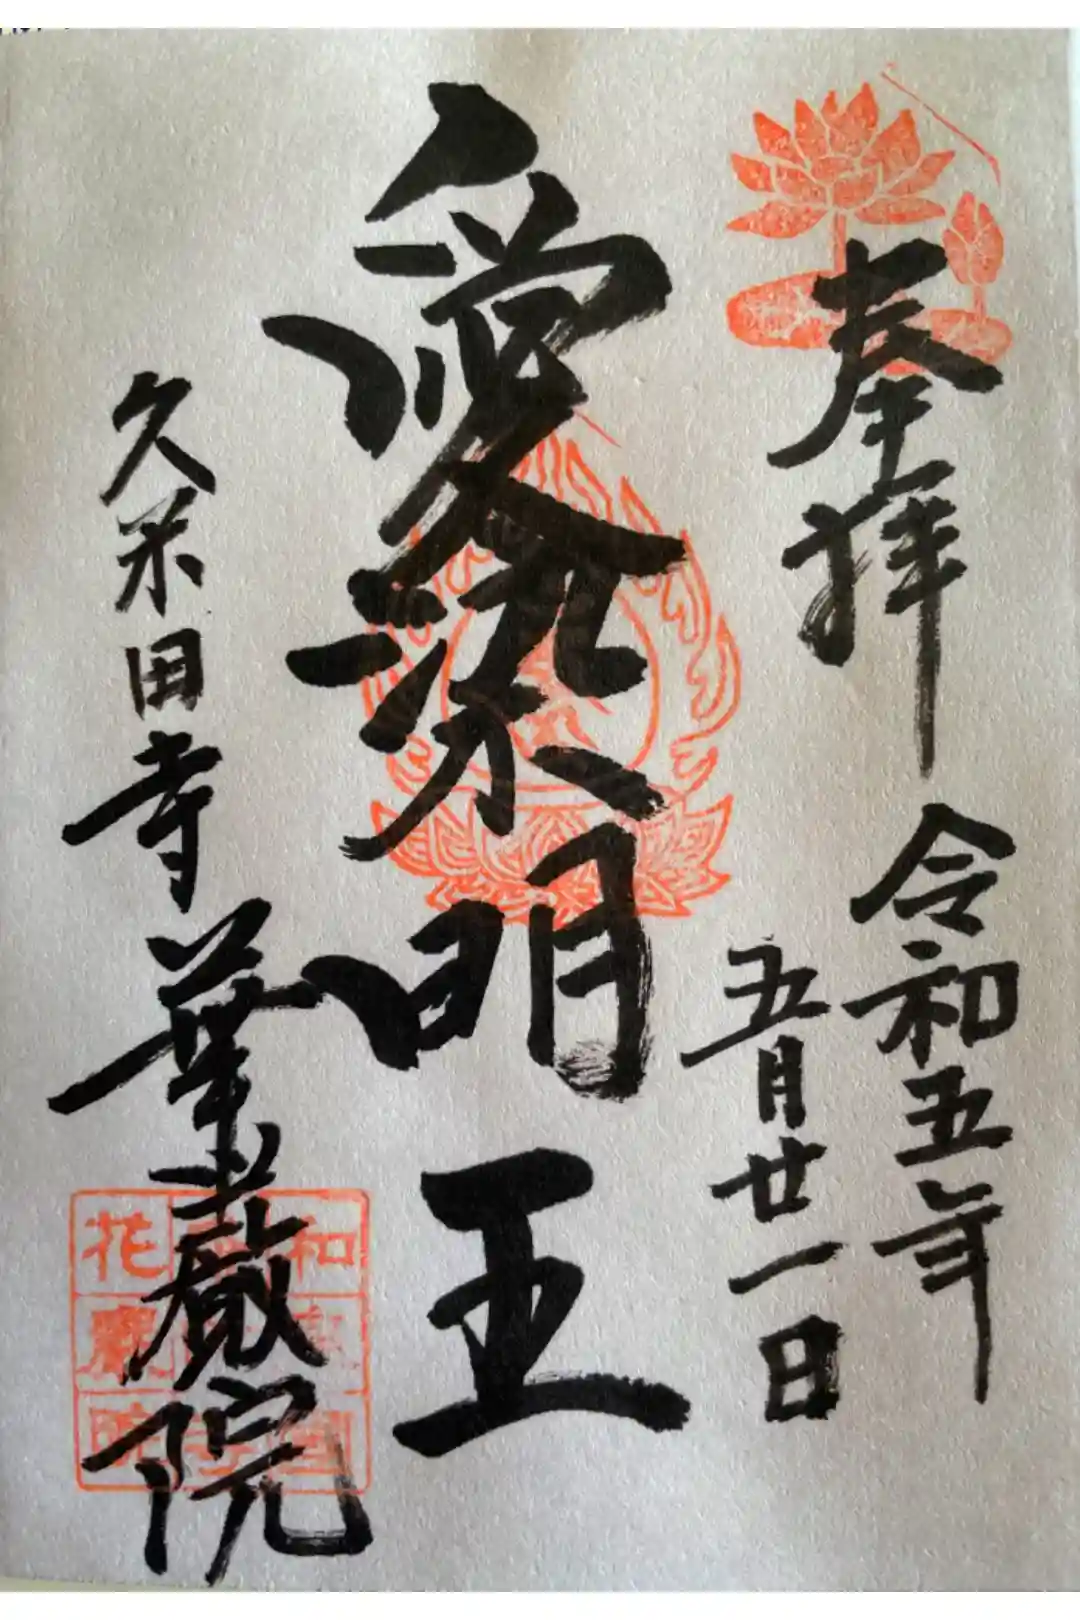 奉拝
令和五年
五月廿一日
愛染明王
久米田寺 華厳院
和
花嚴院